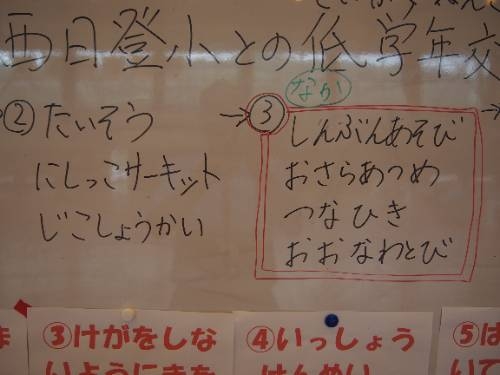 西日登小との低学年交
② たいそう
にしっこサーキット
じこしょうかい
→ ③ なか →
しんぶんあそび
おさらあつめ
つなひき
おおなわとび
③けがをしな
いようにきを
④いっしょう
けんめい
⑤は
いて